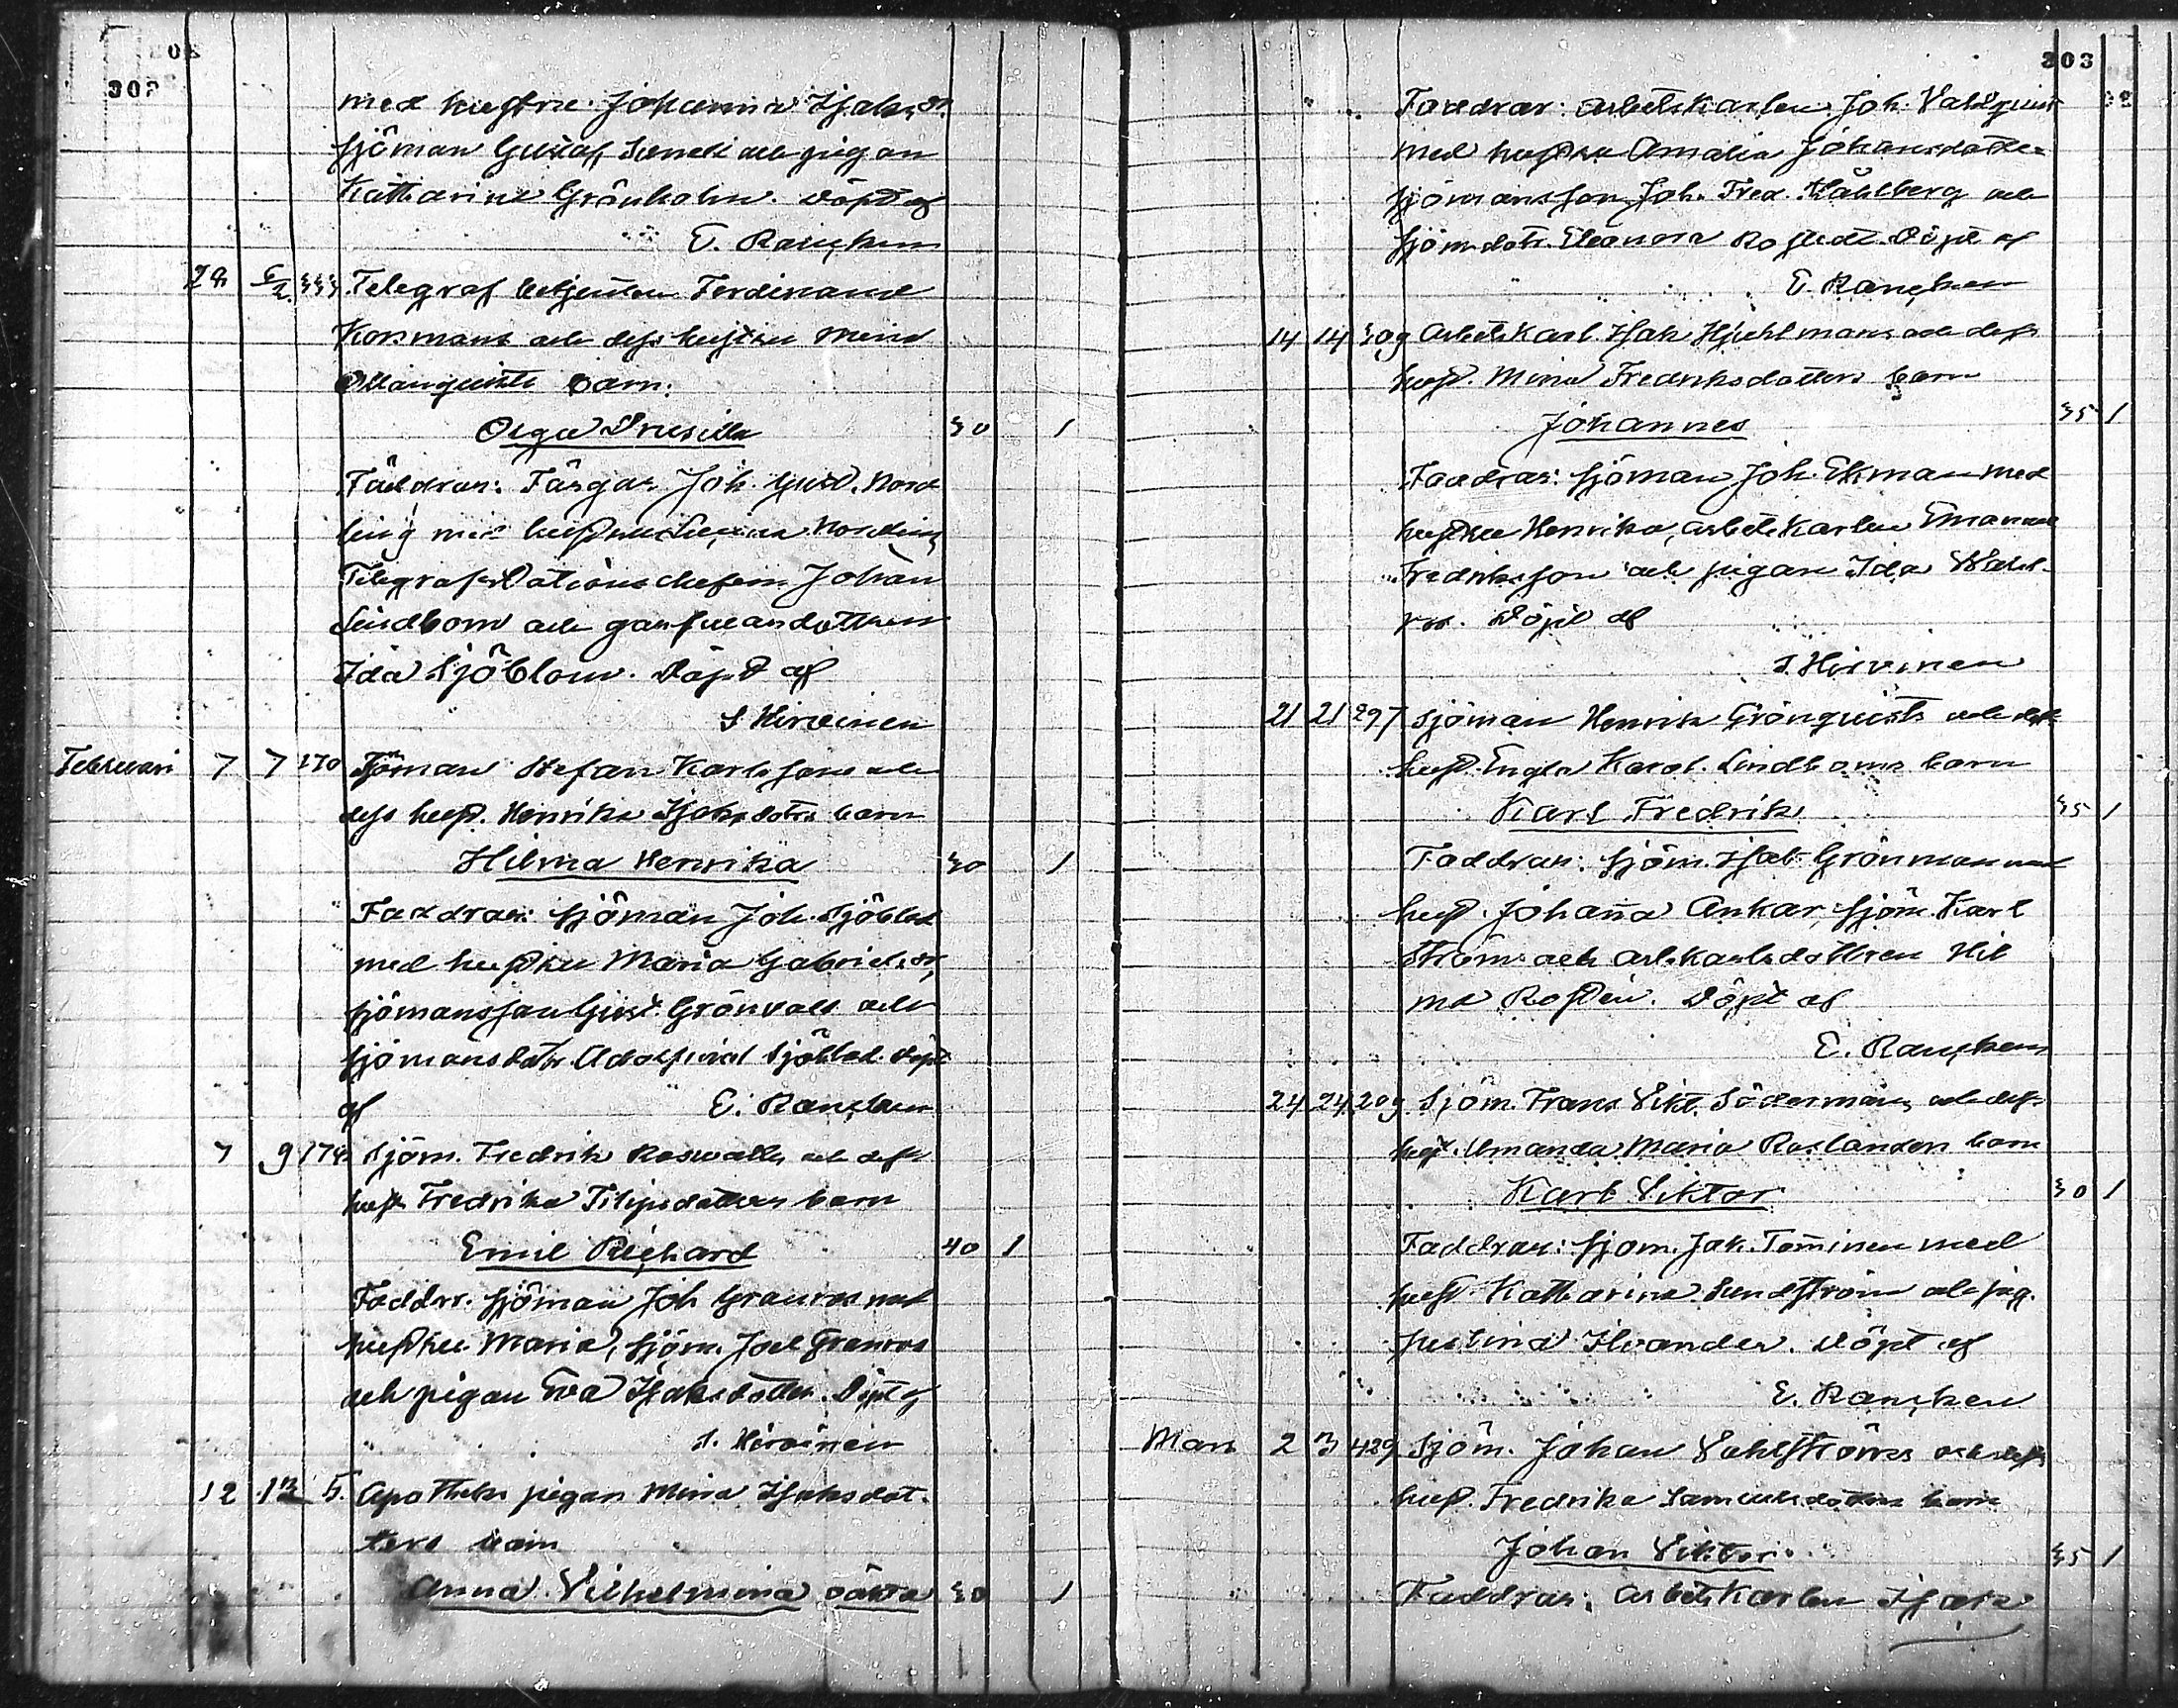 303
med hustru Johanna Isaksdr.
sjöman Gustaf Sundt och pigan
Katharina Grönholm. Döpt af
E. Rancken
24 5/2 333 Telegraf betjenten Ferdinand
Korsmans och dess hustru Minas
barn.
Olga Drusilla 30 1
Faddrar: Färgar Joh. Gust. Nord
ling med hustru Nordling
Telegrafstationschefen Johan
Lindbom och garfveandottren
Ida Sjöblom. Döpt af
S Hirvinen
Februari 7 7 270 Sjöman Stefan Karlssons och
dess hust. Henrika Isaksdotrs barn
Hilma Henrika 30 1
Faddrar: sjöman Joh. Sjöblad
med hustru Maria Gabrielsdr,
sjömansson Gust. Grönvall och
sjömansdotr Adolfina Sjöblad. Döpt
af E. Rancken
7 9 174 Sjöm. Fredrik Roswalls och dess
hust. Fredrika Filipsdotters barn
Emil Richard 40 1
Faddrr. sjöman Joh Granros med
hustru Maria, sjöm. Joel Granros
och pigan Eva Isaksdotter. Döpt af
S. Hirvinen
12 12 5. Apotheks pigan Mina Isaksdot-
ters barn
Anna Vilhelmina oäkta 30 1
303
Faddrar: arbetskarlen Joh. Vahlquist
med hustru Amalia Johansdotter
sjömansson Joh. Fred. Wahlberg och
sjömdotr. Eleonora Rostedt. Döpt af
E. Rancken
14 14 309 Arbetskarl. Isak Hjuhlmans och dess
hust. Mina Fredriksdotters barn
Johannes 35 1
Faddrar: sjöman Joh. Ekman med
hustru Henrika, arbetskarlen Emanuel
Fredriksson och pigan Ida Wahl-
ros. Döpt af
S. Hirvinen
21 21 297 Sjöman Henrik Grönquists och dess
hust. Engla Karol. Lindboms barn
Karl Fredrik 35 1
Faddrar: sjöm. Isak Grönman med
hust. Johanna Ankar, sjöm. Karl
Ström och arb.karlsdottren Hil
ma Rostén. Döpt af
E. Rancken
24 24 209 Sjöm. Frans Vikt. Södermans och dess
hust. Amanda Maria Roslanders barn
Karl Viktor 30 1
Faddrar: sjöm. Jak. Tominen med
hust. Katharina Sundström och pig.
Justina Ilvander. Döpt af
E. Rancken
Mars 2 3 429 Sjöm. Johan Vahlströms och dess
hust. Fredrika Samuelsdotters barn
Johan Viktor 35 1
Faddrar: arbetskarlen Isak